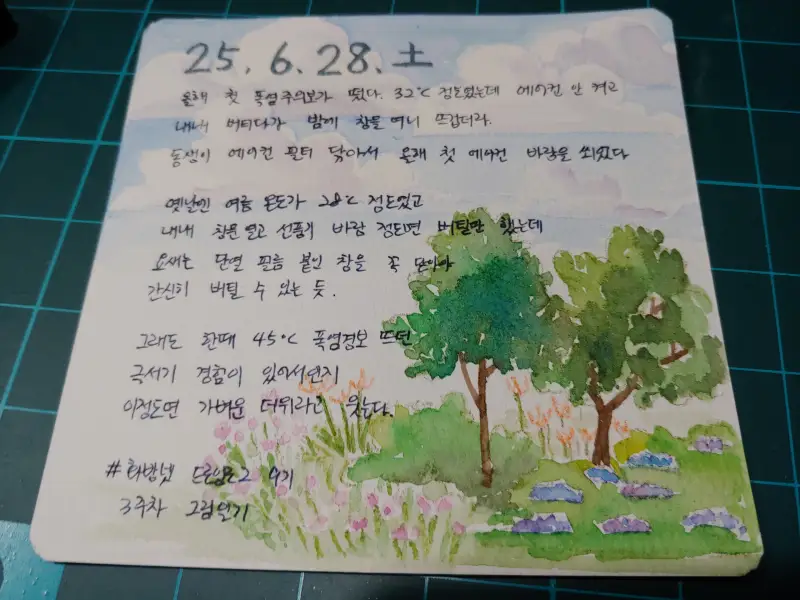 25. 6. 28. 土
올해 첫 폭염주의보가 떴다. 32°C 정도였는데 에어컨 안 켜고
내내 버티다가 밤에 창을 여니 뜨겁더라.
동생이 에어컨 필터 닦아서 올해 첫 에어컨 바람을 쐬었다
옛날엔 여름 온도가 28°C 정도였고
내내 창문 열고 선풍기 바람 정도면 버틸만 했는데
요새는 단열 필름 붙인 창을 꼭 닫아야
간신히 버틸 수 있는 듯.
그래도 한때 45°C 폭염경보 뜨던
극서기 경험이 있어서인지
이정도면 가벼운 더위라고 웃는다.
#화방넷 9기
3주차 그림일기